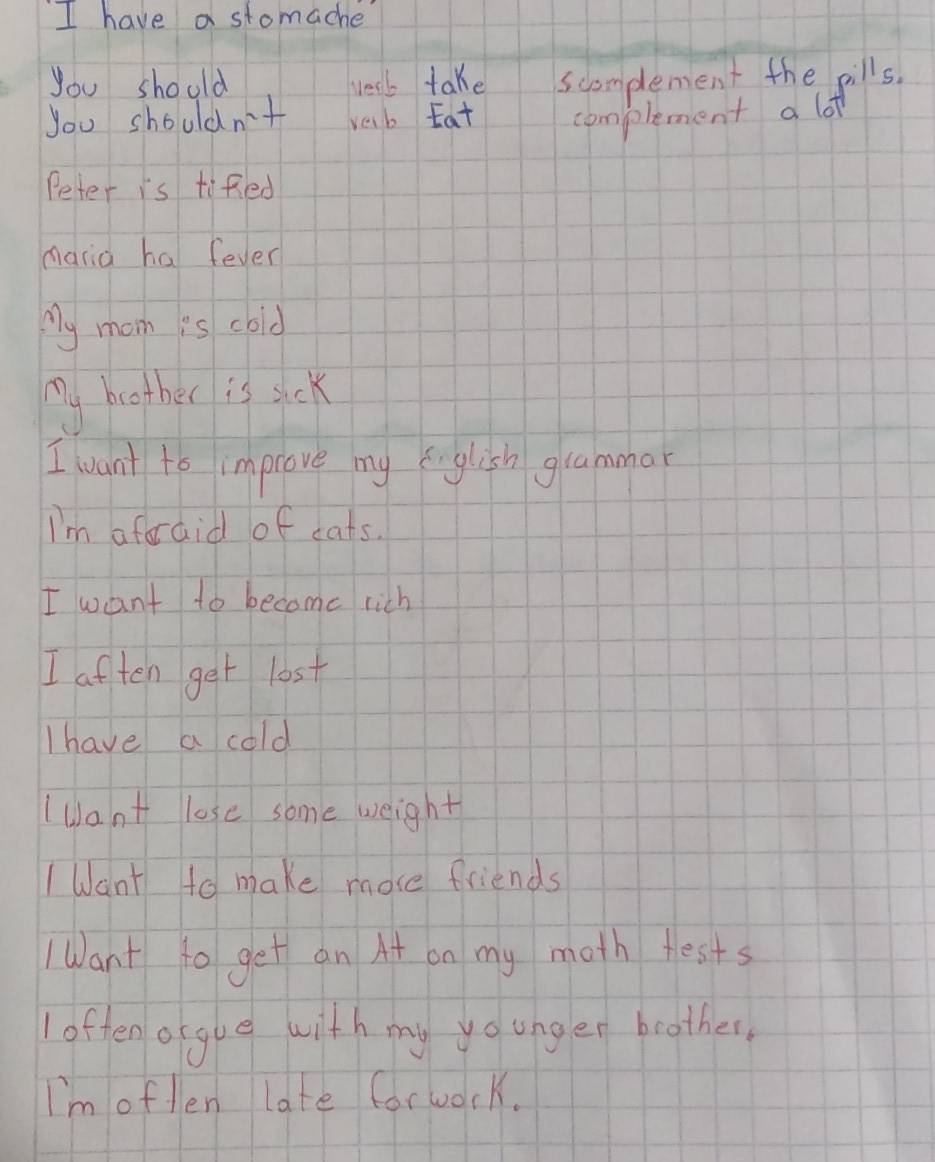 I have a stomache"
You should verb take scomplement the pills.
You shouldn't verb Eat complement a lot
Peter is tired
maria ha fever
My mom is cold
My brother is sick
I want to improve my English grammar
I'm afraid of cats.
I want to become rich
I aften get lost
I have a cold
I Want lose some weight
I Want to make more friends
I Want to get an A+ on my math tests
I often argue with my younger brother.
I'm often late for work.